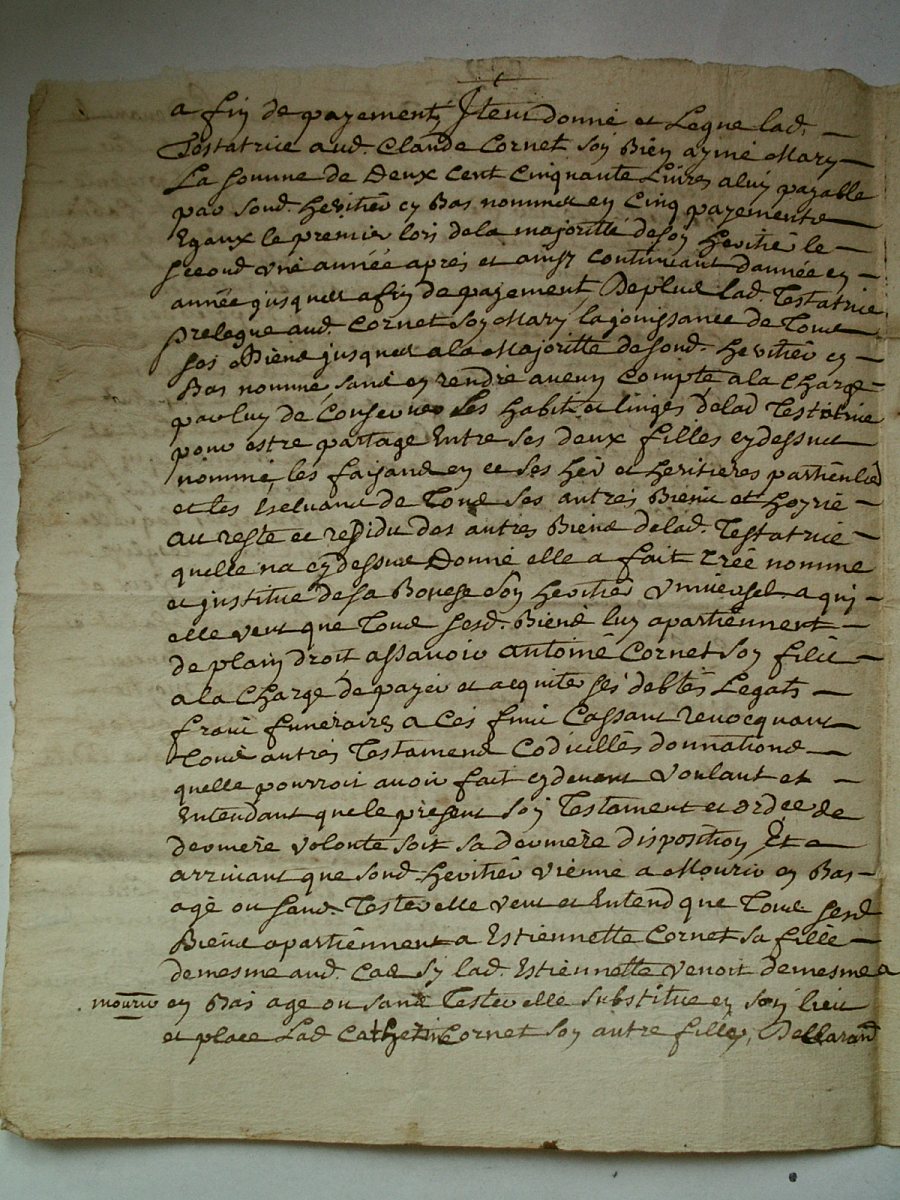 a fin de payement Item donne et Legue lad.
Testatrice aud. Claude Cornet son Bien aymé Mary
La somme de Deux cent cinquante Livres a luy payable
par sond. heritier cy Bas nommer en Cinq payements
Egaux le premier lors de la majoritté de son heritié le
second une année apres et ainsy continuant dannée en
année jusques a fin de payement, De plus lad. Testatrice
prelegue aud. Cornet son Mary, la jouissance de Tous
ses Biens jusques a la Majoritté de sond. heritiér cy
Bas nommé, sans en rendre aucun Compte a la Charge
par luy de Conserver Les habits et linges de lad Testatrice
pour estre partage Entre ses deux filles cydessus
nommé, les faisand en ce ses hér et heritieres particulie
et les Excluant de Tous ses autres Biens et hoyrie
au reste et residu des autres Biens de lad. Testatrice
quelle na cydessus Donné elle a fait Créé nomme
et justitue de sa Bouche son heritier universel a qui
elle veut que Tous sesd. Biens luy apartiennent
de plain droit assavoir antoine Cornet son fils
a la Charge de payer et acquiter ses debtes Legats
frais funeraires a Ces fins Cassant revocquant
Tous autres Testamens Codicilles donnations
quelle pourroit avoir fait cydevant voulant et
Entendant que le present son Testament et ordee de
derniere volonte soit sa derniere disposition Et
arrivant que sond. heritier vienne a Mourir en Bas
age ou sans Tester elle veut et Entend que Tous sesd
Biens apartiennent a Estiennette Cornet sa fille
demesme aud. Cas sy lad. Estiennette venoit demesme a
mourir en Bas age ou sans Tester elle substitue en son lieu
et place Lad Catherine Cornet son autre fille, Declarand